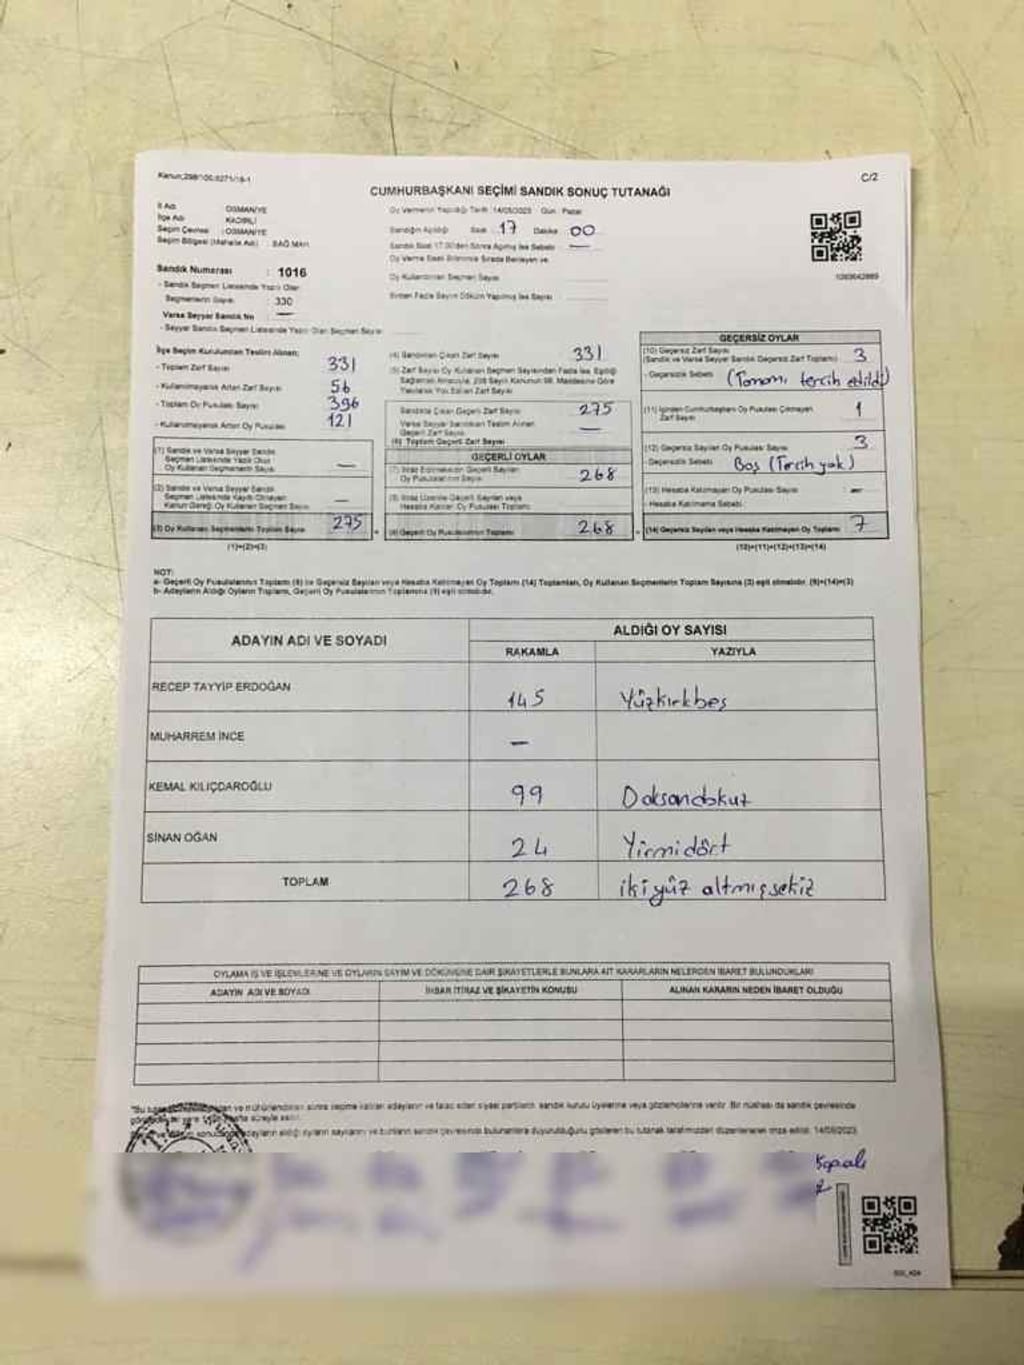 Kanun;298/100;6271/18-1
C/2
CUMHURBAŞKANI SEÇİMİ SANDIK SONUÇ TUTANAĞI
İl Adı : OSMANİYE
İlçe Adı : KADİRLİ
Seçim Çevresi : OSMANİYE
Seçim Bölgesi (Mahalle Adı) : BAĞ MAH.
Sandık Numarası : 1016
- Sandık Seçmen Listesinde Yazılı Olan
Seçmenlerin Sayısı : 330
Varsa Seyyar Sandık No : —
- Seyyar Sandık Seçmen Listesinde Yazılı Olan Seçmen Sayısı
Oy Vermenin Yapıldığı Tarih :14/05/2023 Gün : Pazar
Sandığın Açıldığı Saat : 17 Dakika 00
Sandık Saat 17.00'den Sonra Açılmış İse Sebebi : —
Oy Verme Saati Bitiminde Sırada Bekleyen ve
Oy Kullandırılan Seçmen Sayısı
Birden Fazla Sayım Döküm Yapılmış İse Sayısı
İlçe Seçim Kurulundan Teslim Alınan;
- Toplam Zarf Sayısı : 331
- Kullanılmayarak Artan Zarf Sayısı : 56
- Toplam Oy Pusulası Sayısı : 396
- Kullanılmayarak Artan Oy Pusulası : 121
(1) Sandık ve Varsa Seyyar Sandık
Seçmen Listesinde Yazılı Olan
Oy Kullanan Seçmenlerin Sayısı —
(2) Sandık ve Varsa Seyyar Sandık
Seçmen Listesinde Kayıtlı Olmayan
Kanun Gereği Oy Kullanan Seçmen Sayısı —
(3) Oy Kullanan Seçmenlerin Toplam Sayısı 275
(1)+(2)=(3)
(4) Sandıktan Çıkan Zarf Sayısı : 331
(5) Zarf Sayısı Oy Kullanan Seçmen Sayısından Fazla İse, Eşitliği
Sağlamak Amacıyla, 298 Sayılı Kanunun 98. Maddesine Göre
Yakılarak Yok Edilen Zarf Sayısı
Sandıkta Çıkan Geçerli Zarf Sayısı : 275
Varsa Seyyar Sandıktan Teslim Alınan
Geçerli Zarf Sayısı —
(6) Toplam Geçerli Zarf Sayısı
GEÇERLİ OYLAR
(7) İtiraz Edilmeksizin Geçerli Sayılan
Oy Pusulalarının Sayısı : 268
(8) İtiraz Üzerine Geçerli Sayılan veya
Hesaba Katılan Oy Pusulası Toplamı
(9) Geçerli Oy Pusulalarının Toplamı : 268
GEÇERSİZ OYLAR
(10) Geçersiz Zarf Sayısı
(Sandık ve Varsa Seyyar Sandık Geçersiz Zarf Toplamı) : 3
- Geçersizlik Sebebi : (Tamamı tercih edildi)
(11) İçinden Cumhurbaşkanı Oy Pusulası Çıkmayan
Zarf Sayısı : 1
(12) Geçersiz Sayılan Oy Pusulası Sayısı : 3
- Geçersizlik Sebebi : Boş (Tercih yok)
(13) Hesaba Katılmayan Oy Pusulası Sayısı : —
- Hesaba Katılmama Sebebi :
(14) Geçersiz Sayılan veya Hesaba Katılmayan Oy Toplamı : 7
(10)+(11)+(12)+(13)=(14)
NOT:
a- Geçerli Oy Pusulalarının Toplamı (9) ile Geçersiz Sayılan veya Hesaba Katılmayan Oy Toplamı (14) Toplamları, Oy Kullanan Seçmenlerin Toplam Sayısına (3) eşit olmalıdır. (9)+(14)=(3)
b- Adayların Aldığı Oyların Toplamı, Geçerli Oy Pusulalarının Toplamına (9) eşit olmalıdır.
ADAYIN ADI VE SOYADI
ALDIĞI OY SAYISI
RAKAMLA YAZIYLA
RECEP TAYYİP ERDOĞAN 145 Yüzkırkbeş
MUHARREM İNCE —
KEMAL KILIÇDAROĞLU 99 Doksandokuz
SİNAN OĞAN 24 Yirmidört
TOPLAM 268 ikiyüz altmışsekiz
OYLAMA İŞ VE İŞLEMLERİNE VE OYLARIN SAYIM VE DÖKÜMÜNE DAİR ŞİKAYETLERLE BUNLARA AİT KARARLARIN NELERDEN İBARET BULUNDUKLARI
ADAYIN ADI VE SOYADI İHBAR İTİRAZ VE ŞİKAYETİN KONUSU ALINAN KARARIN NEDEN İBARET OLDUĞU
ve mühürlendikten sonra seçime katılan adayların ve talep eden siyasi partilerin sandık kurulu üyelerine veya gözlemcilerine verilir. Bir nüshası da sandık çevresinde
hafta süreyle asılır.
adayların aldığı oyların sayılarını ve bunların sandık çevresinde bulunanlara duyurulduğunu gösteren bu tutanak tarafımızdan düzenlenerek imza edildi. 14/05/2023
Kapalı